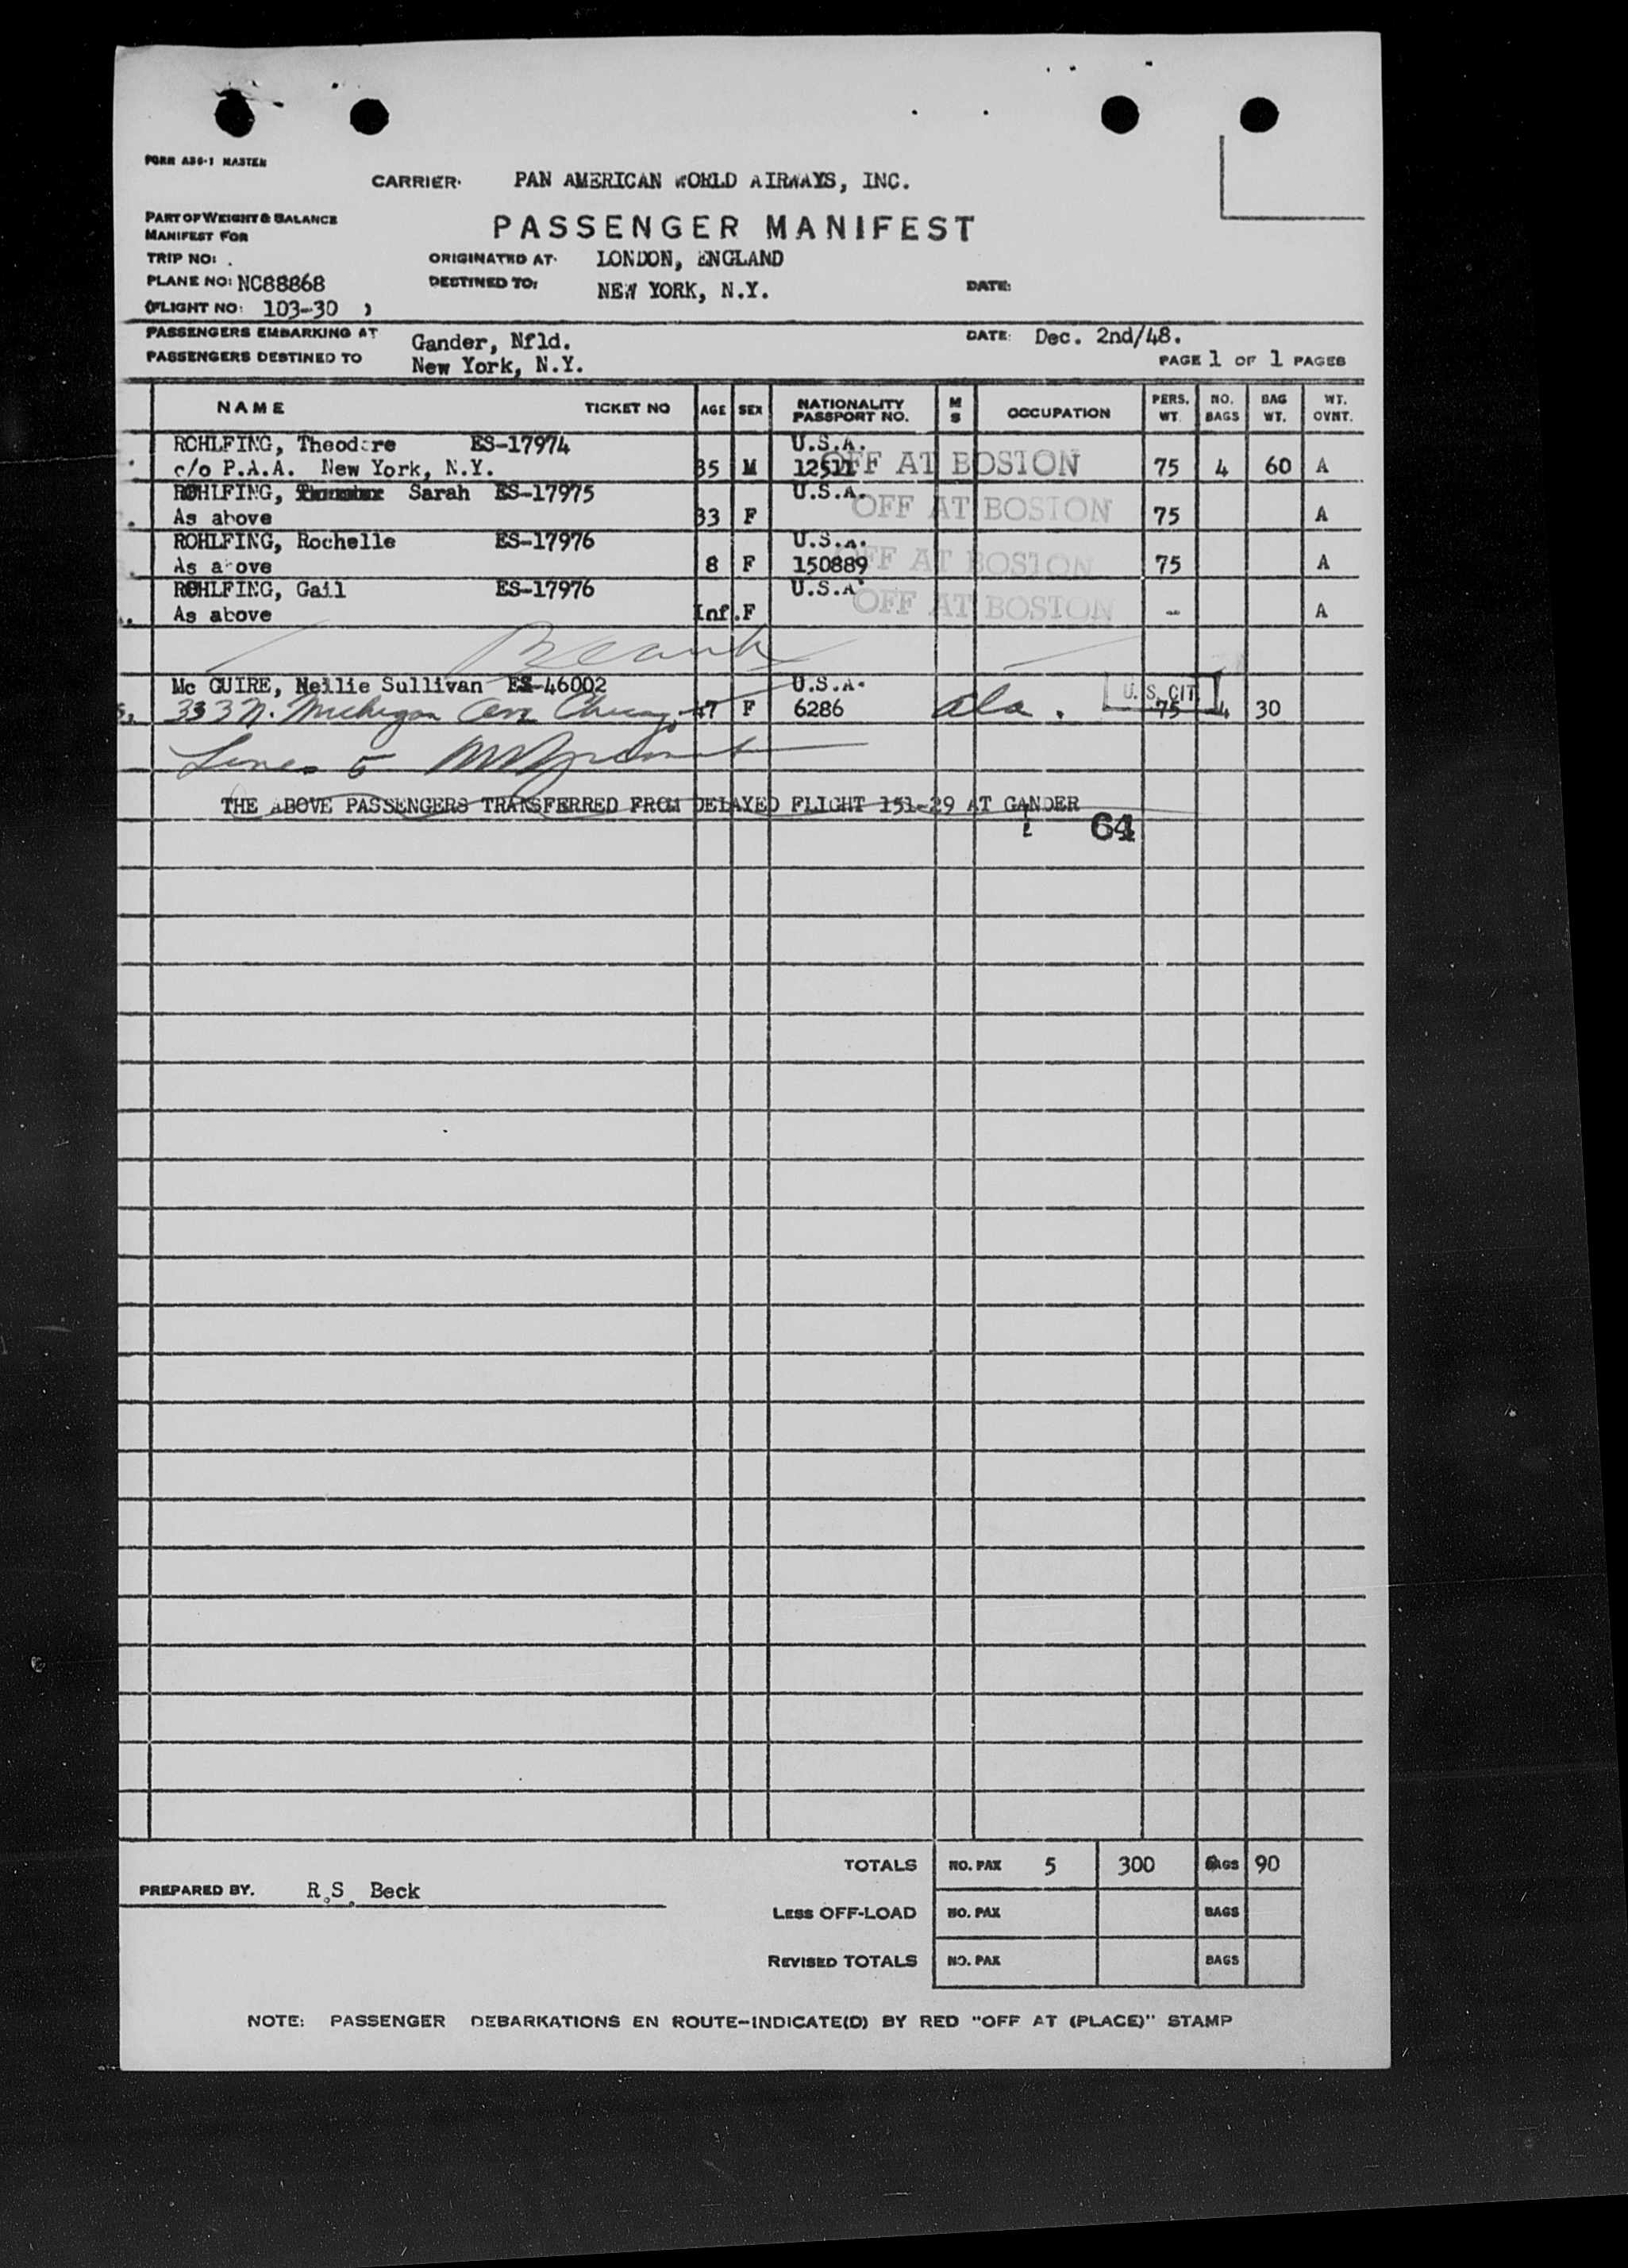 FORM A36-1 MASTER
CARRIER: PAN AMERICAN WORLD AIRWAYS, INC.
PART OF WEIGHT & BALANCE
MANIFEST FOR
PASSENGER MANIFEST
TRIP NO: .
ORIGINATED AT: LONDON, ENGLAND
PLANE NO: NC88868
DESTINED TO: NEW YORK, N.Y.
DATE:
(FLIGHT NO: 103-30 )
PASSENGERS EMBARKING AT Gander, Nfld.
DATE: Dec. 2nd/48.
PASSENGERS DESTINED TO New York, N.Y.
PAGE 1 OF 1 PAGES
NAME TICKET NO AGE SEX NATIONALITY PASSPORT NO. M S OCCUPATION PERS. WT. NO. BAGS BAG WT. WT. OVNT.
ROHLFING, Theodore ES-17974 U.S.A.
c/o P.A.A. New York, N.Y. 35 M 12511 OFF AT BOSTON 75 4 60 A
ROHLFING, Sarah ES-17975 U.S.A.
As above 33 F OFF AT BOSTON 75 A
ROHLFING, Rochelle ES-17976 U.S.A.
As above 8 F 150889 OFF AT BOSTON 75 A
ROHLFING, Gail ES-17976 U.S.A
As above Inf. F OFF AT BOSTON - A
Blank
Mc GUIRE, Nellie Sullivan ES-46002 U.S.A. U.S. CIT
333 N. Michigan Ave Chicago 47 F 6286 Ala. 75 4 30
Lines 5
THE ABOVE PASSENGERS TRANSFERRED FROM DELAYED FLIGHT 151-29 AT GANDER
64
TOTALS NO. PAX 5 300 BAGS 90
PREPARED BY. R.S. Beck
LESS OFF-LOAD NO. PAX BAGS
REVISED TOTALS NO. PAX BAGS
NOTE: PASSENGER DEBARKATIONS EN ROUTE-INDICATE(D) BY RED "OFF AT (PLACE)" STAMP